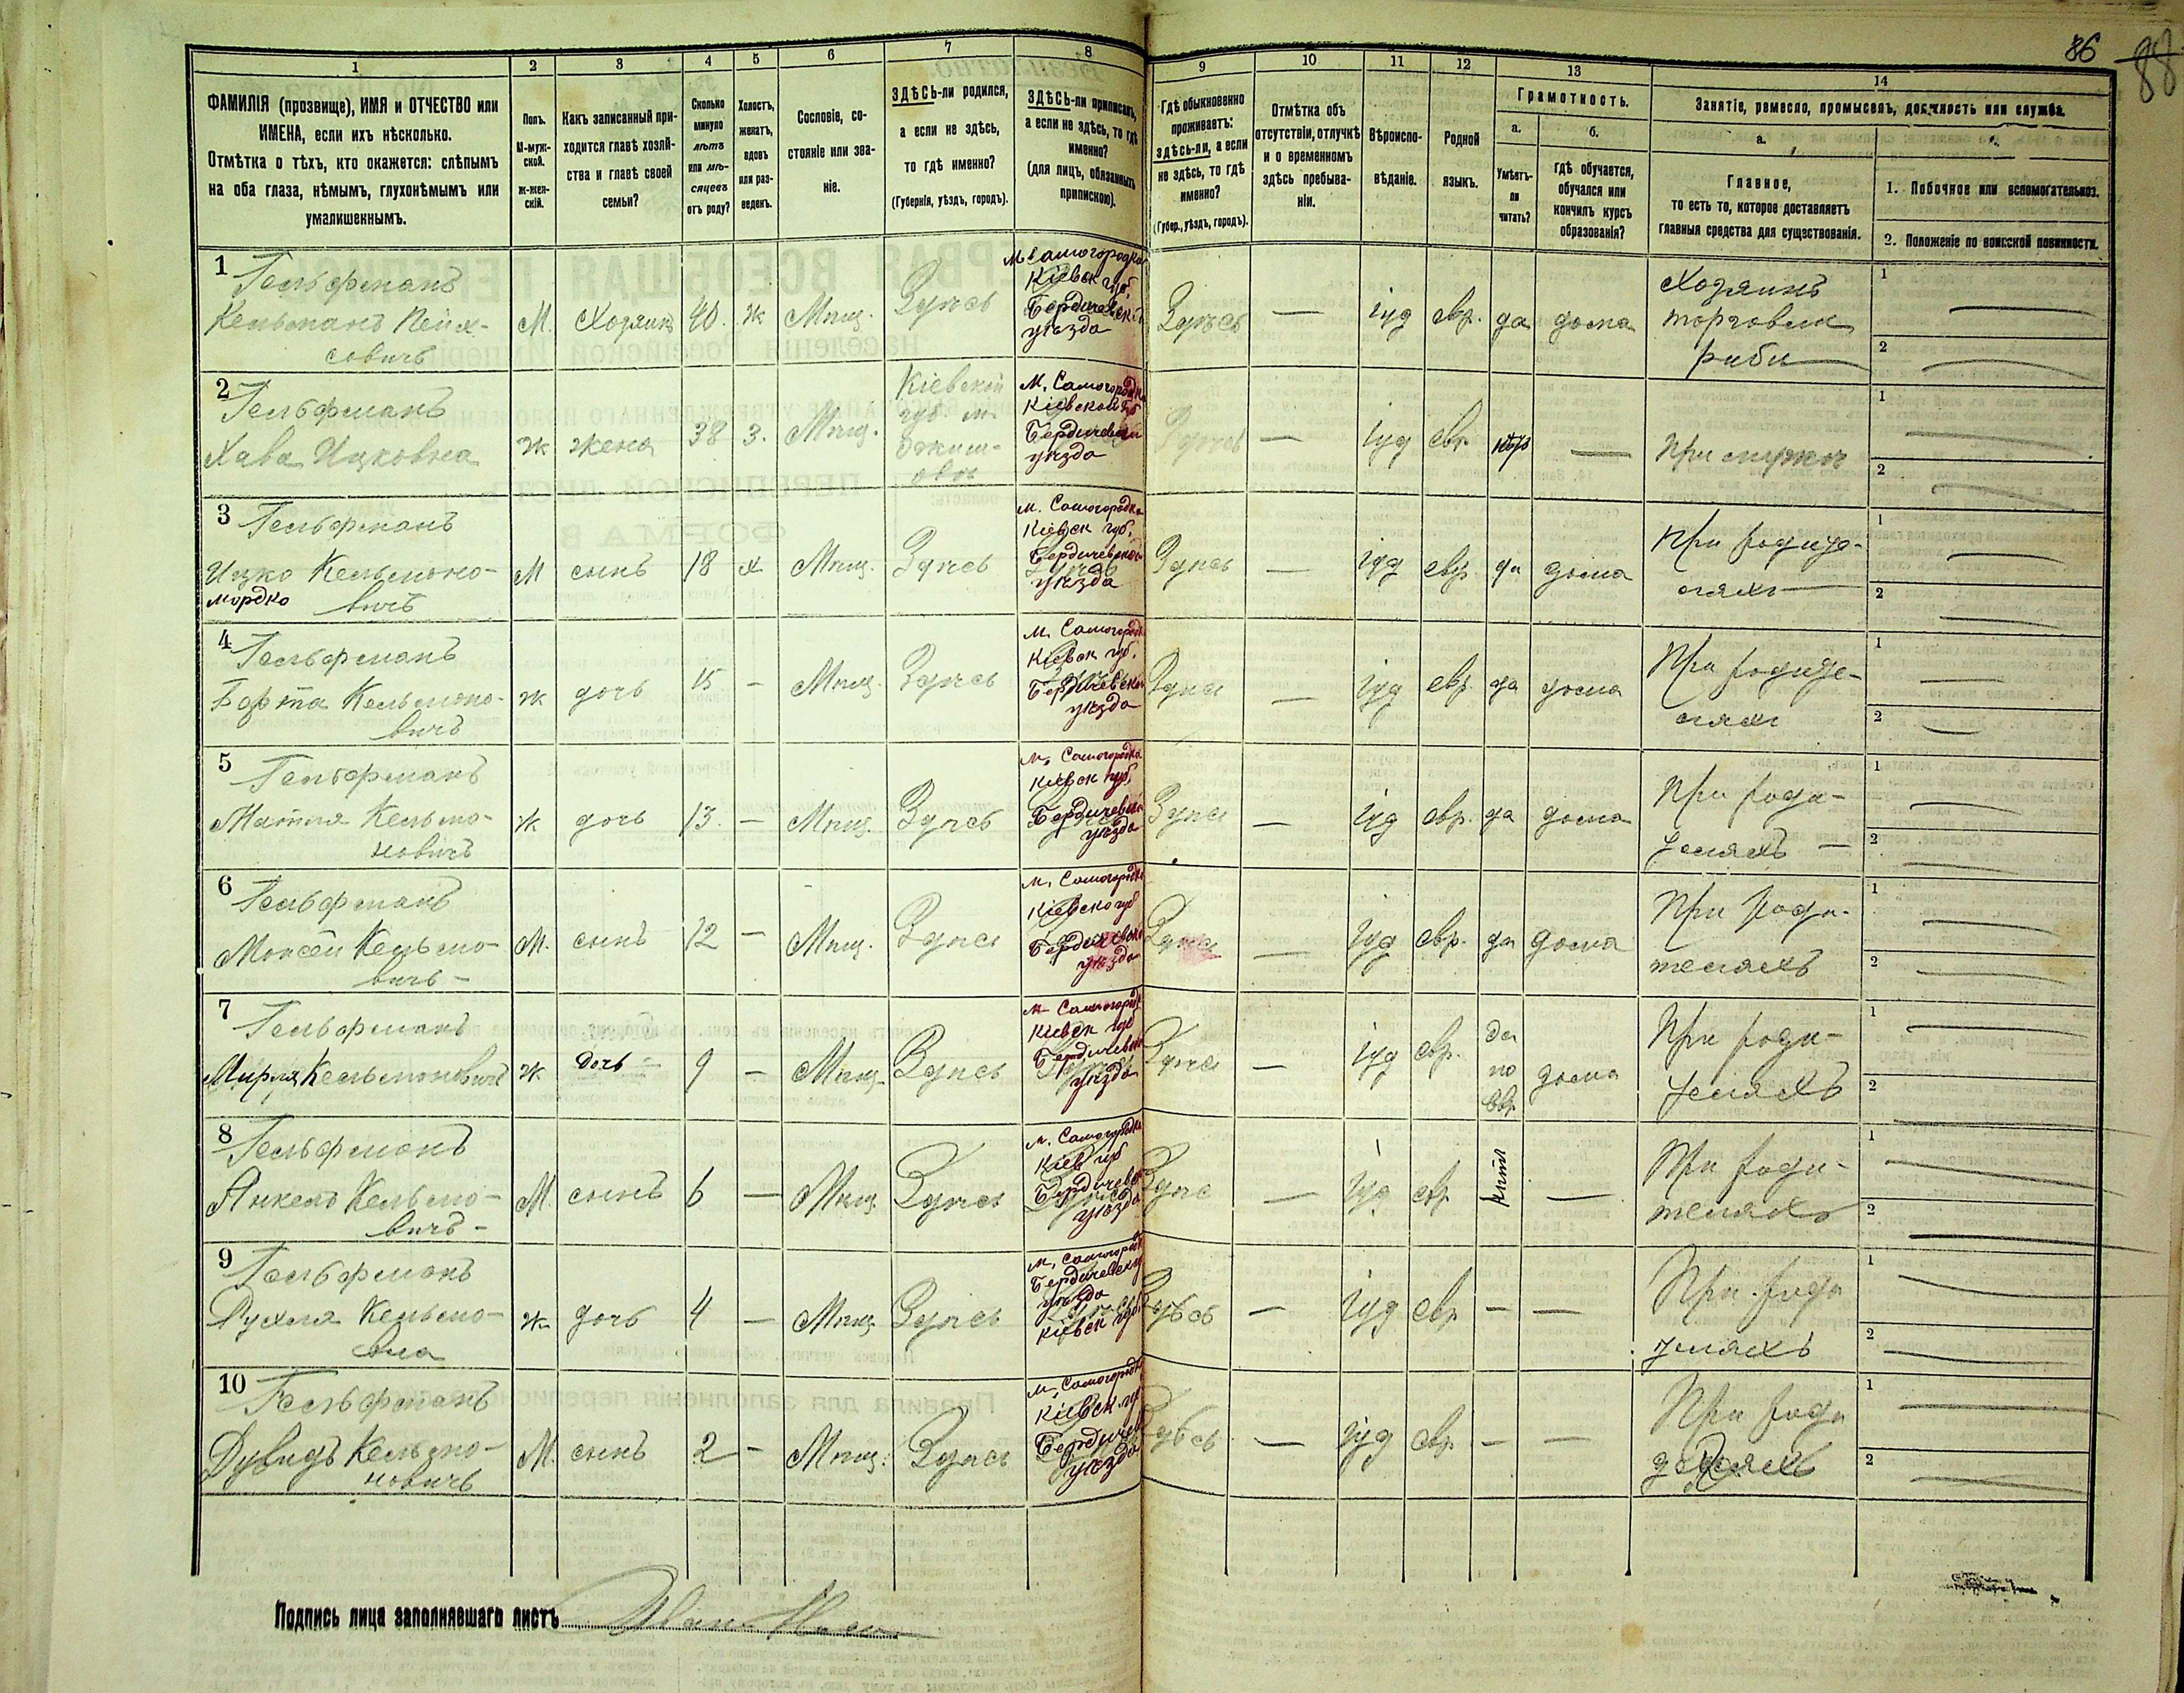 86
88
1
2
3
4
5
6
7
8
9
10
11
12
13
14
ФАМИЛІЯ (прозвище), ИМЯ и ОТЧЕСТВО или
ИМЕНА, если ихъ нѣсколько.
Отмѣтка о тѣхъ, кто окажется: слѣпымъ
на оба глаза, нѣмымъ, глухонѣмымъ или
умалишеннымъ.
Полъ.
М-муж-
ской.
ж-жен-
скій.
Какъ записанный при-
ходится главѣ хозяй-
ства и главѣ своей
семьи?
Сколько
минуло
лѣтъ
или мѣ-
сяцевъ
отъ роду?
Холостъ,
женатъ,
вдовъ
или раз-
веденъ.
Сословіе, со-
стояніе или зва-
ніе.
ЗДѢСЬ-ли родился,
а если не здѣсь,
то гдѣ именно?
(Губернія, уѣздъ, городъ).
ЗДѢСЬ-ли приписанъ,
а если не здѣсь, то гдѣ
именно?
(для лицъ, обязанныхъ
припискою).
Гдѣ обыкновенно
проживаетъ:
здѣсь-ли, а если
не здѣсь, то гдѣ
именно?
(Губер., уѣздъ, городъ).
Отмѣтка объ
отсутствіи, отлучкѣ
и о временномъ
здѣсь пребыва-
ніи.
Вѣроиспо-
вѣданіе.
Родной
языкъ.
Грамотность.
а.
б.
Умѣетъ-
ли
читать?
гдѣ обучается,
обучался или
кончилъ курсъ
образованія?
Занятіе, ремесло, промыселъ, должность или служба.
а.
Главное,
то есть то, которое доставляетъ
главныя средства для существованія.
1. Побочное или вспомогательное.
2. Положеніе по воинской повинности.
1
Гельфманъ
М. Хозяинъ 40. ж Мѣщ. Здѣсь
м Самогородка
Кіевск губ.
Бердичевск
уѣзда
Здѣсь — іуд евр. да дома
Хозяинъ
торговля
риби
1
2
2
Гельфманъ
Хава Ицковна
ж жена 38 з. Мѣщ.
Кіевской
губ м
м. Самогородка
Кіевской губ
Бердичевск
уѣзда
Здѣсь — іуд евр —
При мужѣ
1
2
3
Гельфманъ
Ицко Кельмоно-
мордко вичъ
М сынъ 18 х Мѣщ. Здѣсь
м. Самогородка
Кіевск губ.
Бердичевской
уѣзда
Здѣсь — іуд евр. да дома
При родите-
ляхъ
1
2
4
Гельфманъ
Кельмоно-
вичъ
ж дочь 15 — Мѣщ. Здѣсь
м. Самогородк
Кіевск губ.
Бердичевской
уѣзда
Здѣсь — іуд евр. да дома
При родите-
ляхъ
1
2
5
Гельфманъ
Кельмо-
новичъ
ж дочь 13. — Мѣщ. Здѣсь
м. Самогородка
Кіевск губ.
Бердичевской
уѣзда
Здѣсь — іуд евр. да дома
При роди-
теляхъ —
1
2
6
Гельфманъ
Моисей Кельмо-
вичъ —
М. сынъ 12 — Мѣщ. Здѣсь
м. Самогородк
Кіевско губ
Бердичевско
уѣзда
Здѣсь — іуд евр. да дома
При роди-
теляхъ
1
2
7
Гельфманъ
Мирля Кельмоновичъ
ж Дочь — 9 — Мѣщ. Здѣсь
м. Самогород
Кіевск губ
Бердичевск
уѣзда
Здѣсь — іуд евр. да
по
евр
дома
При роди-
теляхъ
1
2
8
Гельфманъ
Янкель Кельмо-
вичъ —
М. сынъ 6 — Мѣщ. Здѣсь
м. Самогородк
Кіев губ
Бердичевс
уѣзда
Здѣсь — іуд евр —
При роди-
теляхъ
1
2
9
Гельфманъ
Рухля Кельмо-
вна
ж дочь 4 — Мѣщ Здѣсь
м. Самогород
Бердичевску
уѣзда
Кіевск губ.
Здѣсь — іуд евр — —
При роди
теляхъ
1
2
10
Гельфманъ
Дувидъ Кельмо-
новичъ
М. сынъ 2 — Мѣщ. Здѣсь
м. Самогородк
Кіевск губ
Бердичев
уѣзда
Здѣсь — іуд евр — —
При роди
теляхъ
1
2
Подпись лица заполнявшаго листъ